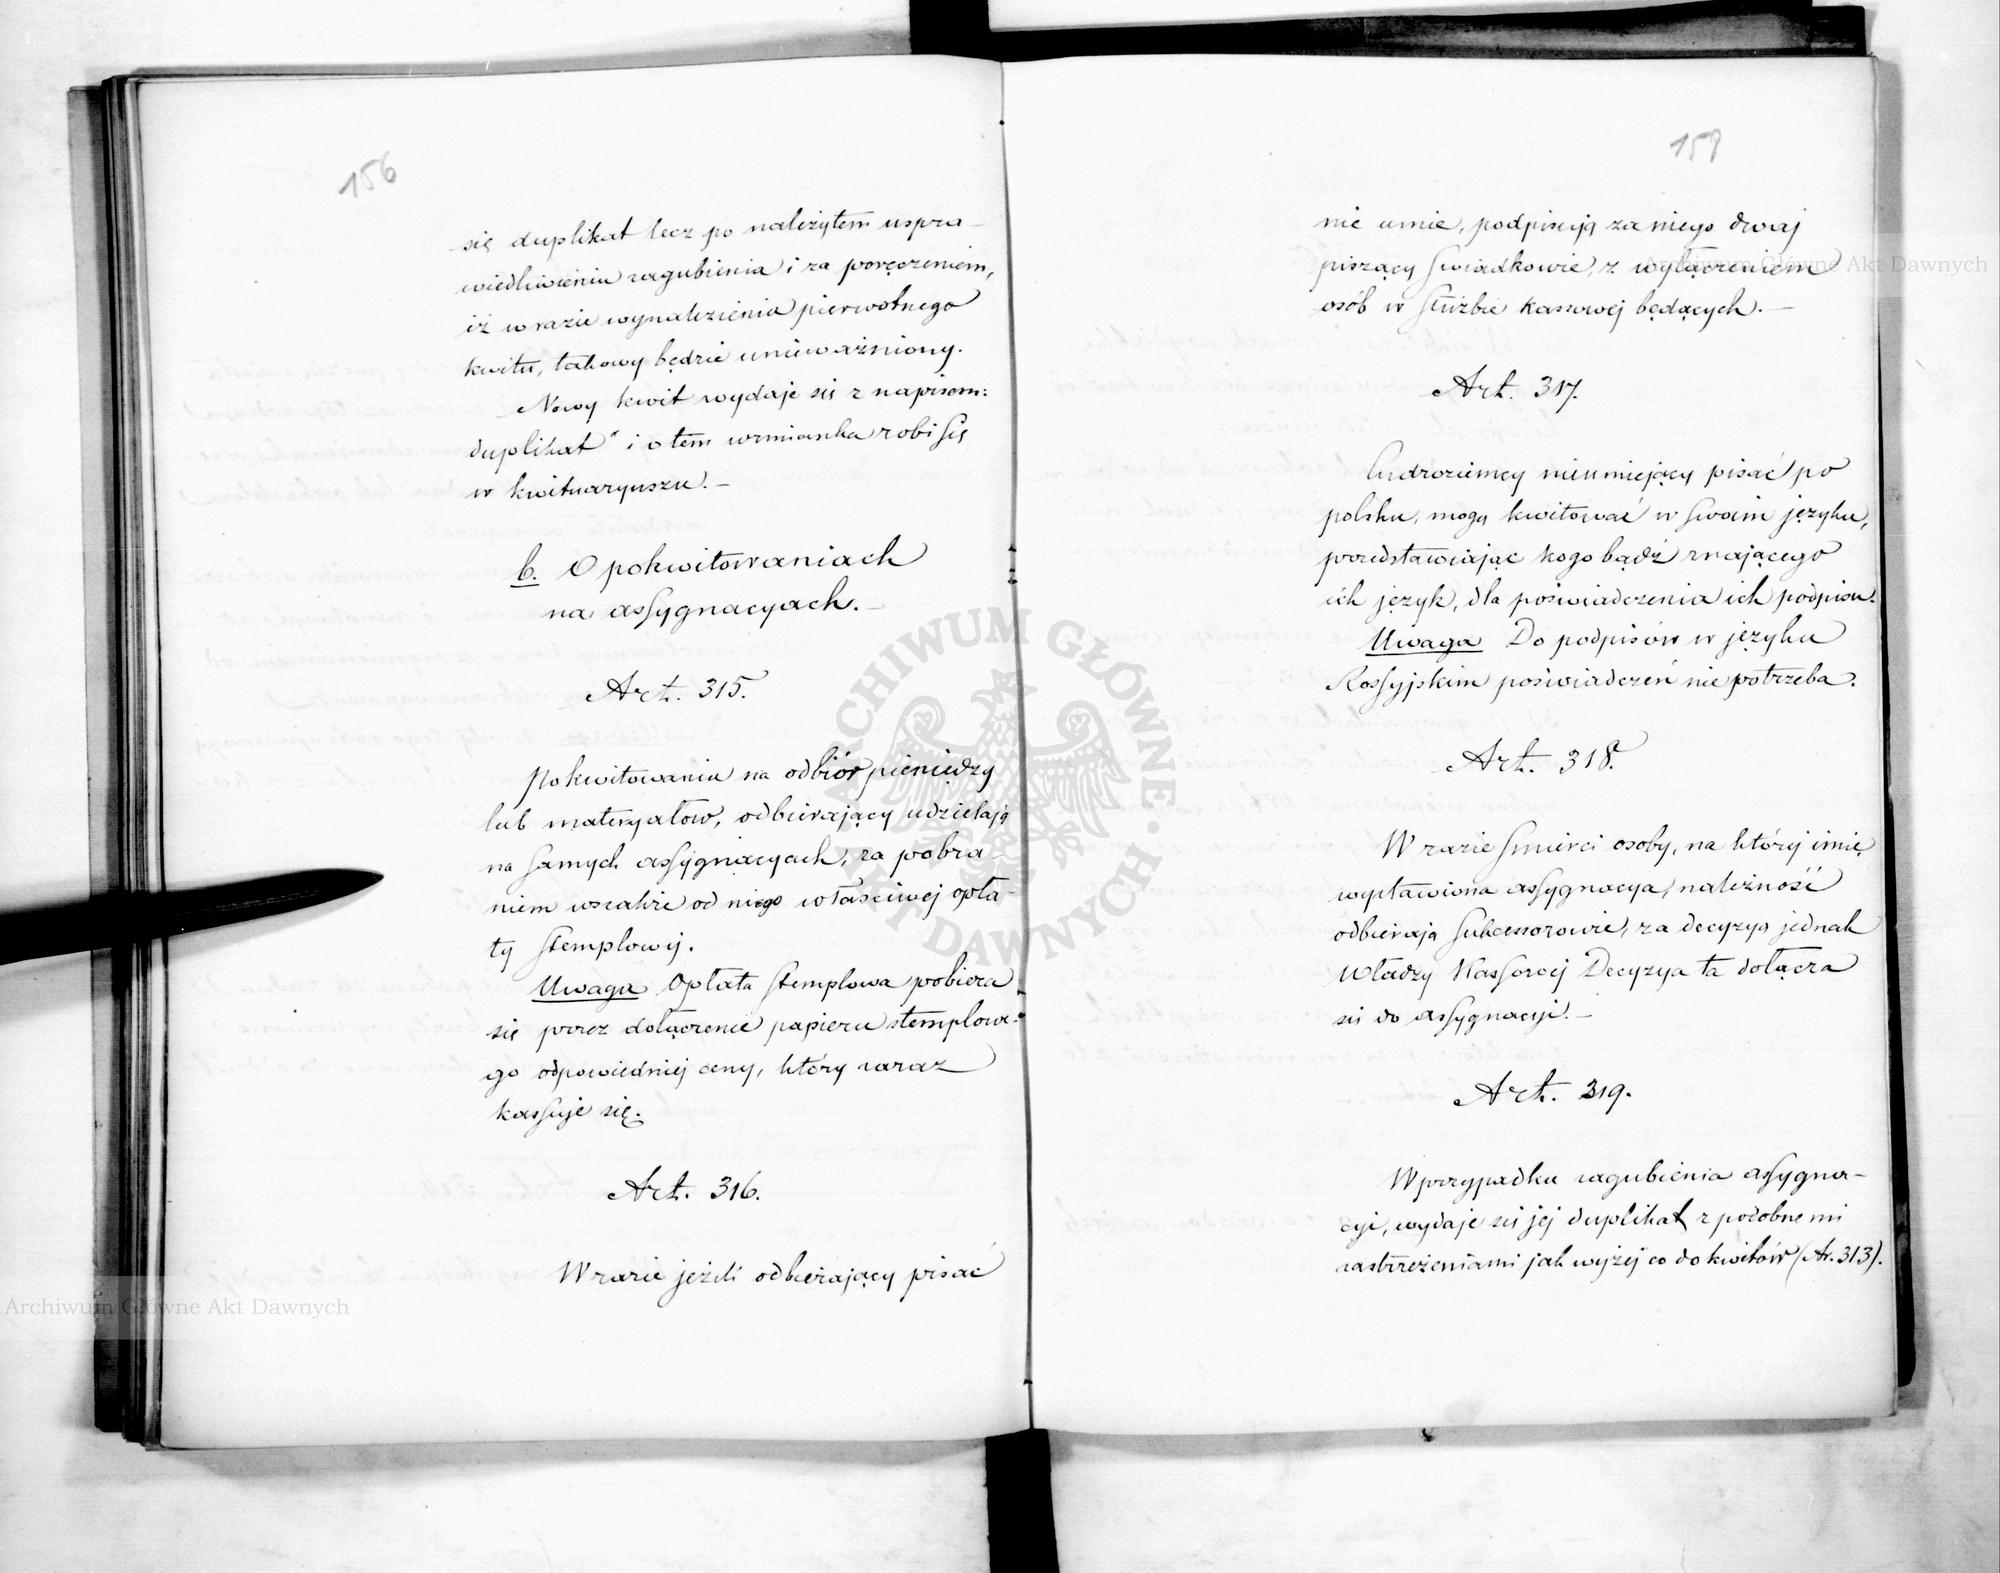 156
się duplikat lecz po należytem uspra-
wiedliwieniu zagubienia i za poręczeniem,
iż w razie wynalezienia pierwotnego
kwitu, takowy będzie unieważniony.
Nowy kwit wydaje się z napisem:
duplikat" i o tem wzmianka robi się
w kwitaryuszu.-
b. O pokwitowaniach
na assygnacyach.-
Art. 315.
Pokwitowania na odbiór pieniędzy
lub materyałów, odbierający udzielają
na samych assygnacyach, za pobra-
niem wszakże od niego właściwej opła-
ty stemplowej.
Uwaga Opłata stemplowa pobiera
się przez dołączenie papieru stemplowe-
go odpowiedniej ceny, który zaraz
kassuje się.
Art. 316.
W razie jeżeli odbierający pisać
nie umie, podpisują za niego dwaj
piszący świadkowie, z wyłączeniem
osób w służbie kassowej będących.-
Art. 317.
Cudzoziemcy nieumiejący pisać po
polsku, mogą kwitować w swoim języku,
przedstawiając kogo bądź znającego
ich język, dla poświadczenia ich podpisu.
Uwaga Do podpisów w języku
Rossyjskim poświadczeń nie potrzeba.
Art. 318.
W razie śmierci osoby, na której imię
wystawiona assygnacya, należność
odbierają sukcessorowie, za decyzyą jednak
Władzy Kassowej Decyzya ta dołącza
się do assygnacyi.-
Art. 319.
W przypadku zagubienia assygna-
cyi, wydaje się jej duplikat z podobnemi
zastrzeżeniami jak wyżej co do kwitów (Ar. 313).
Archiwum Główne Akt Dawnych
Archiwum Główne Akt Dawnych
ARCHIWUM GŁÓWNE AKT DAWNYCH